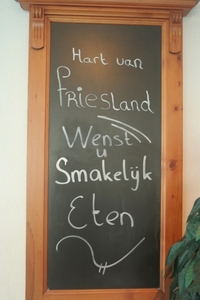 Hart van
Friesland
Wenst
u
Smakelijk
Eten